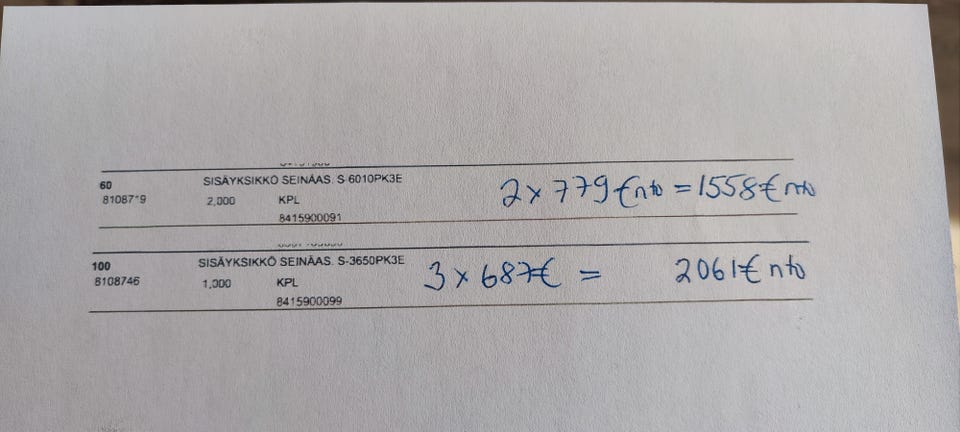 60 SISÄYKSIKKÖ SEINÄAS. S-6010PK3E 2 x 779 € nto = 1558 € nto
8108719 2,000 KPL
8415900091
100 SISÄYKSIKKÖ SEINÄAS. S-3650PK3E 3 x 687€ = 2061€ nto
8108746 1,000 KPL
8415900099